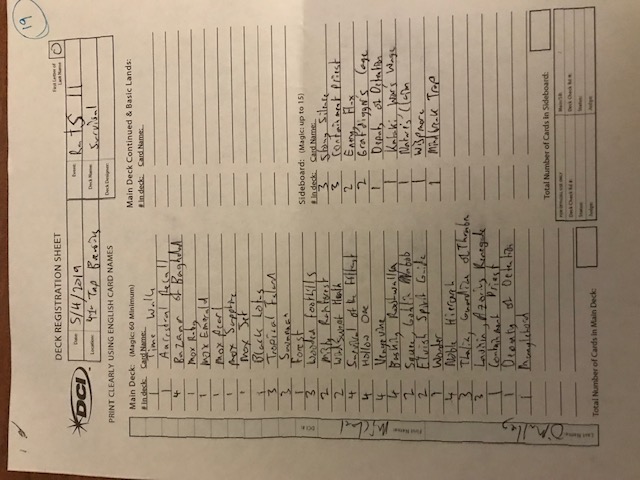 19
DECK REGISTRATION SHEET
First Letter of Last Name O
DCI
Date: 5/4/2019
Event:
Location: Tap
Deck Name: Survival
Deck Designer:
PRINT CLEARLY USING ENGLISH CARD NAMES
Main Deck: (Magic: 60 Minimum)
# in deck: Card Name:
1 Time Walk
1 Ancestral Recall
4 Bazaar of Baghdad
1 Mox Ruby
1 Mox Emerald
1 Mox Pearl
1 Mox Sapphire
1 Mox Jet
1 Black Lotus
3 Tropical Island
3 Savannah
1 Forest
3 Wooded Foothills
2 Misty Rainforest
2 Windswept Heath
4 Survival of the Fittest
4 Hollow One
4 Vengevine
4 Basking Rootwalla
2 Squee, Goblin Nabob
2 Elvish Spirit Guide
1 Wonder
4 Noble Hierarch
3 Thalia, Guardian of Thraben
3 Lavinia, Azorius Renegade
1 Containment Priest
1 Deputy of Detention
1
Total Number of Cards in Main Deck:
Main Deck Continued & Basic Lands:
# in deck: Card Name:
Sideboard: (Magic: up to 15)
# in deck: Card Name:
3 Stony Silence
3 Containment Priest
2 Energy Flux
2 Grafdigger's Cage
1 Deputy of Detention
1 Kataki War's Wage
1 Nature's Claim
1 Wispmare
1 Mindbreak Trap
Total Number of Cards in Sideboard:
FOR OFFICIAL USE ONLY
Main/SB:
Deck Check Rd #:
Deck Check Rd #:
Status:
Status:
Judge:
Judge:
Last Name: O'Malley First Name: Michael DCI #: